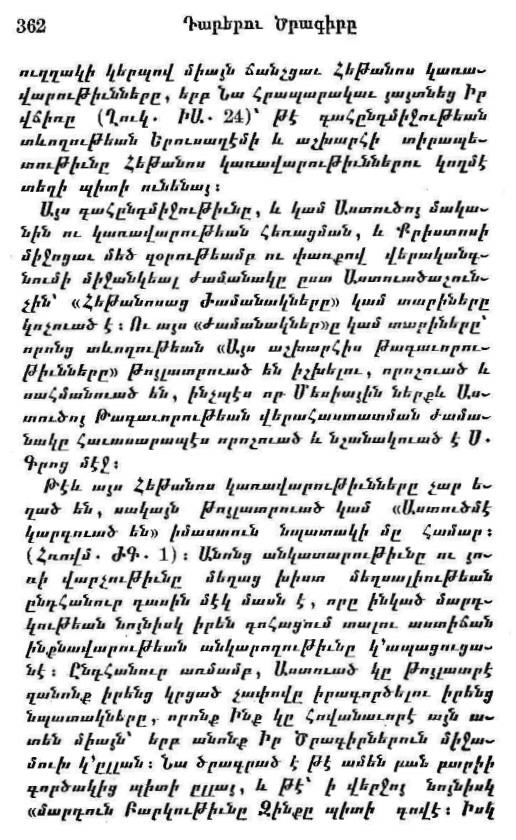 362 Դարերու Ծրագիրը
ուղղակի կերպով միայն ճանչցաւ Հեթանոս կառա-
վարութիւնները, երբ Նա Հրապարակաւ յայտնեց Իր
վճիռը (Ղուկ. ԻԱ. 24)՝ թէ գահընդմիջութեան
տևողութեան Երուսաղէմի և աշխարհի տիրապե-
տութիւնը Հեթանոս կառավարութիւններու կողմէ
տեղի պիտի ունենայ:
Այս գահընդմիջութիւնը, և կամ Աստուծոյ մակա-
նին ու կառավարութեան Հեռացման, և Քրիստոսի
միջոցաւ մեծ զօրութեամբ ու փառքով վերականգ-
նումի միջանկեալ ժամանակը ըստ Աստուածաշուն-
չին՝ «Հեթանոսաց Ժամանակները» կամ տարիները
կոչուած է: Ու այս «Ժամանակներ»ը կամ տարիները՝
որոնց տևողութեան «Այս աշխարհիս թագաւորու-
թիւնները» թոյլատրուած են իշխելու, որոշուած և
սահմանուած են, ինչպէս որ Մեսիային ներքև Աս-
տուծոյ Թագաւորութեան վերահաստատման ժամա-
նակը Հաւասարապէս որոշուած և նշանակուած է Ս.
Գրոց մէջ:
Թէև այս Հեթանոս կառավարութիւնները չար ե-
ղած են, սակայն թոյլատրուած կամ «Աստուծմէ
կարգուած են» իմաստուն նպատակի մը Համար:
(Հռովմ. ԺԳ. 1): Անոնց անկատարութիւնը ու յո-
ռի վարչութիւնը մեղաց խիստ մեղսալիութեան
ընդհանուր դասին մէկ մասն է, որը ինկած մարդ-
կութեան նոյնիսկ իրեն գոհացում տալու աստիճան
ինքնավարութեան անկարողութիւնը կ՚ապացուցա-
նէ: Ընդհանուր առմամբ, Աստուած կը թոյլատրէ
զանոնք իրենց կրցած չափովը իրագործելու իրենց
նպատակները, որոնք Ինք կը Հովանաւորէ այն ա-
տեն միայն՝ երբ անոնք Իր Ծրագիրներուն միջա-
մուխ կ՚ըլլան: Նա ծրագրած է թէ ամեն բան բարիի
գործակից պիտի ըլլայ, և թէ՝ ի վերջոյ նոյնիսկ
«մարդուն Բարկութիւնը Զինքը պիտի գովէ: Իսկ